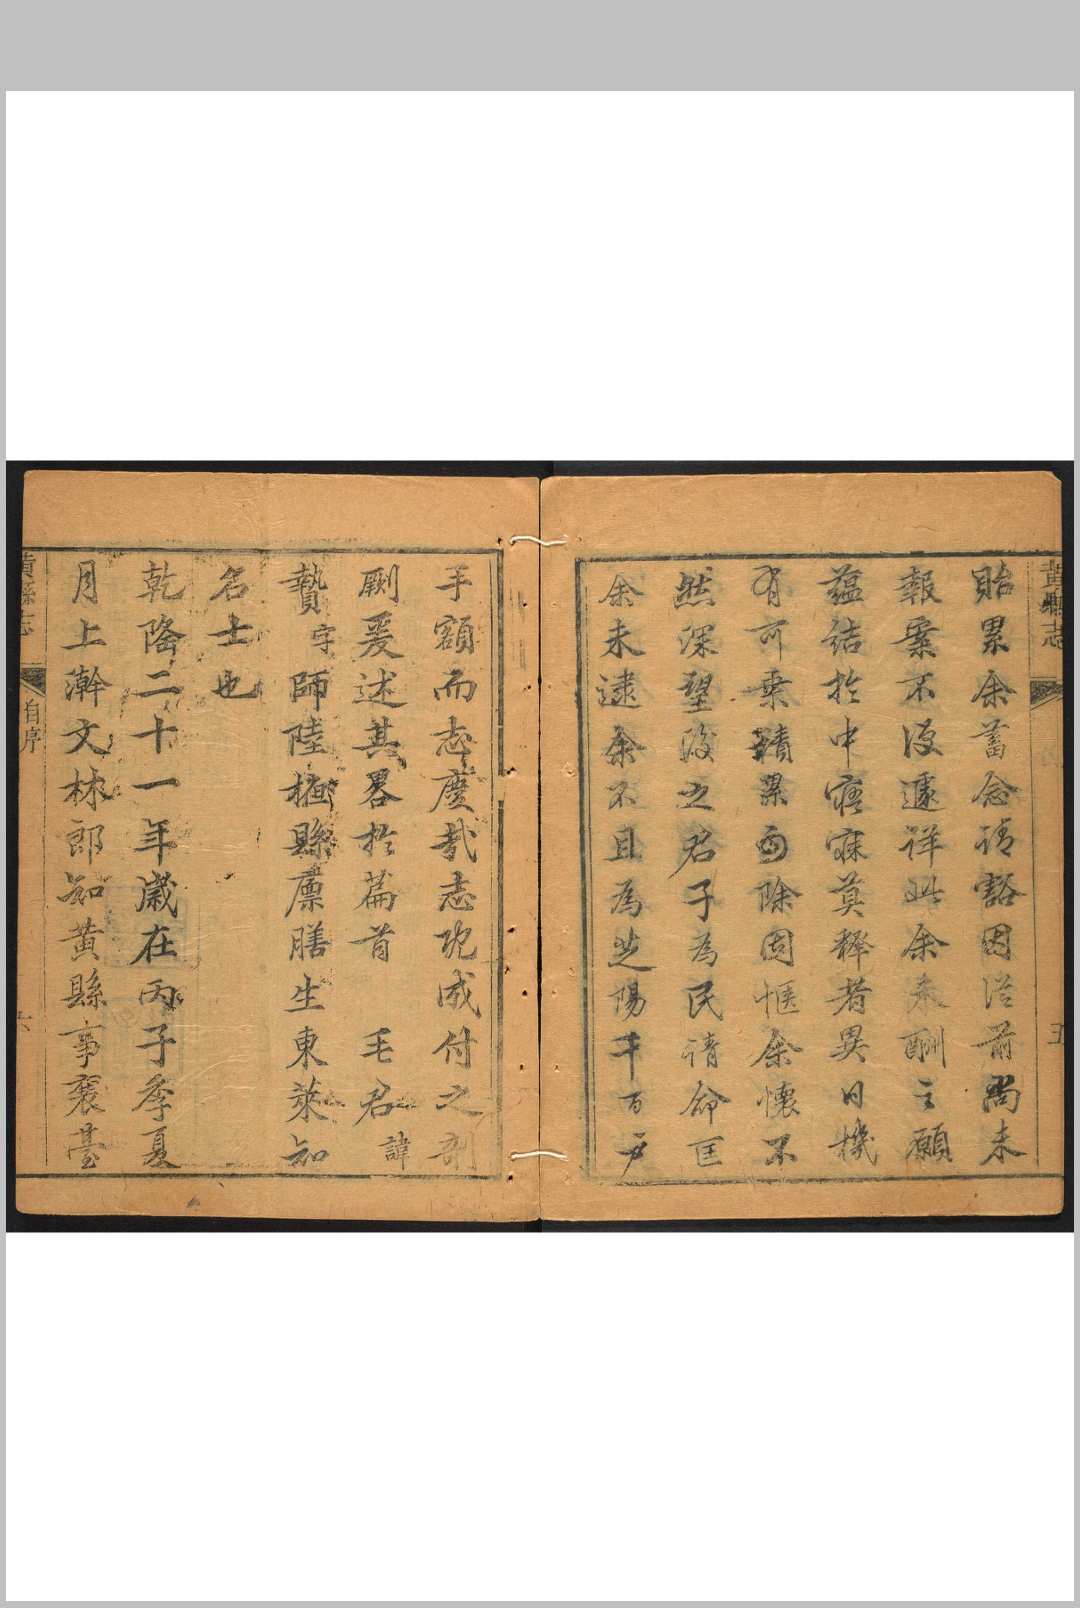 黃縣志
五
貽累余蓄念請豁因從前尚未
報案不便遽詳此余未酬之願
蘊結於中寤寐莫釋者異日機
有可乘積累勿除固愜余懷不
然深望後之君子為民請命匡
余未逮余不且為芝陽千百戶
手額而志慶哉志既成付之剞
劂爰述其畧於篇首 毛君諱
贄字師陸掖縣廩膳生東萊知
名士也
乾隆二十一年歲在丙子季夏
月上澣文林郎知黃縣事襄臺
黃縣志
自序
六